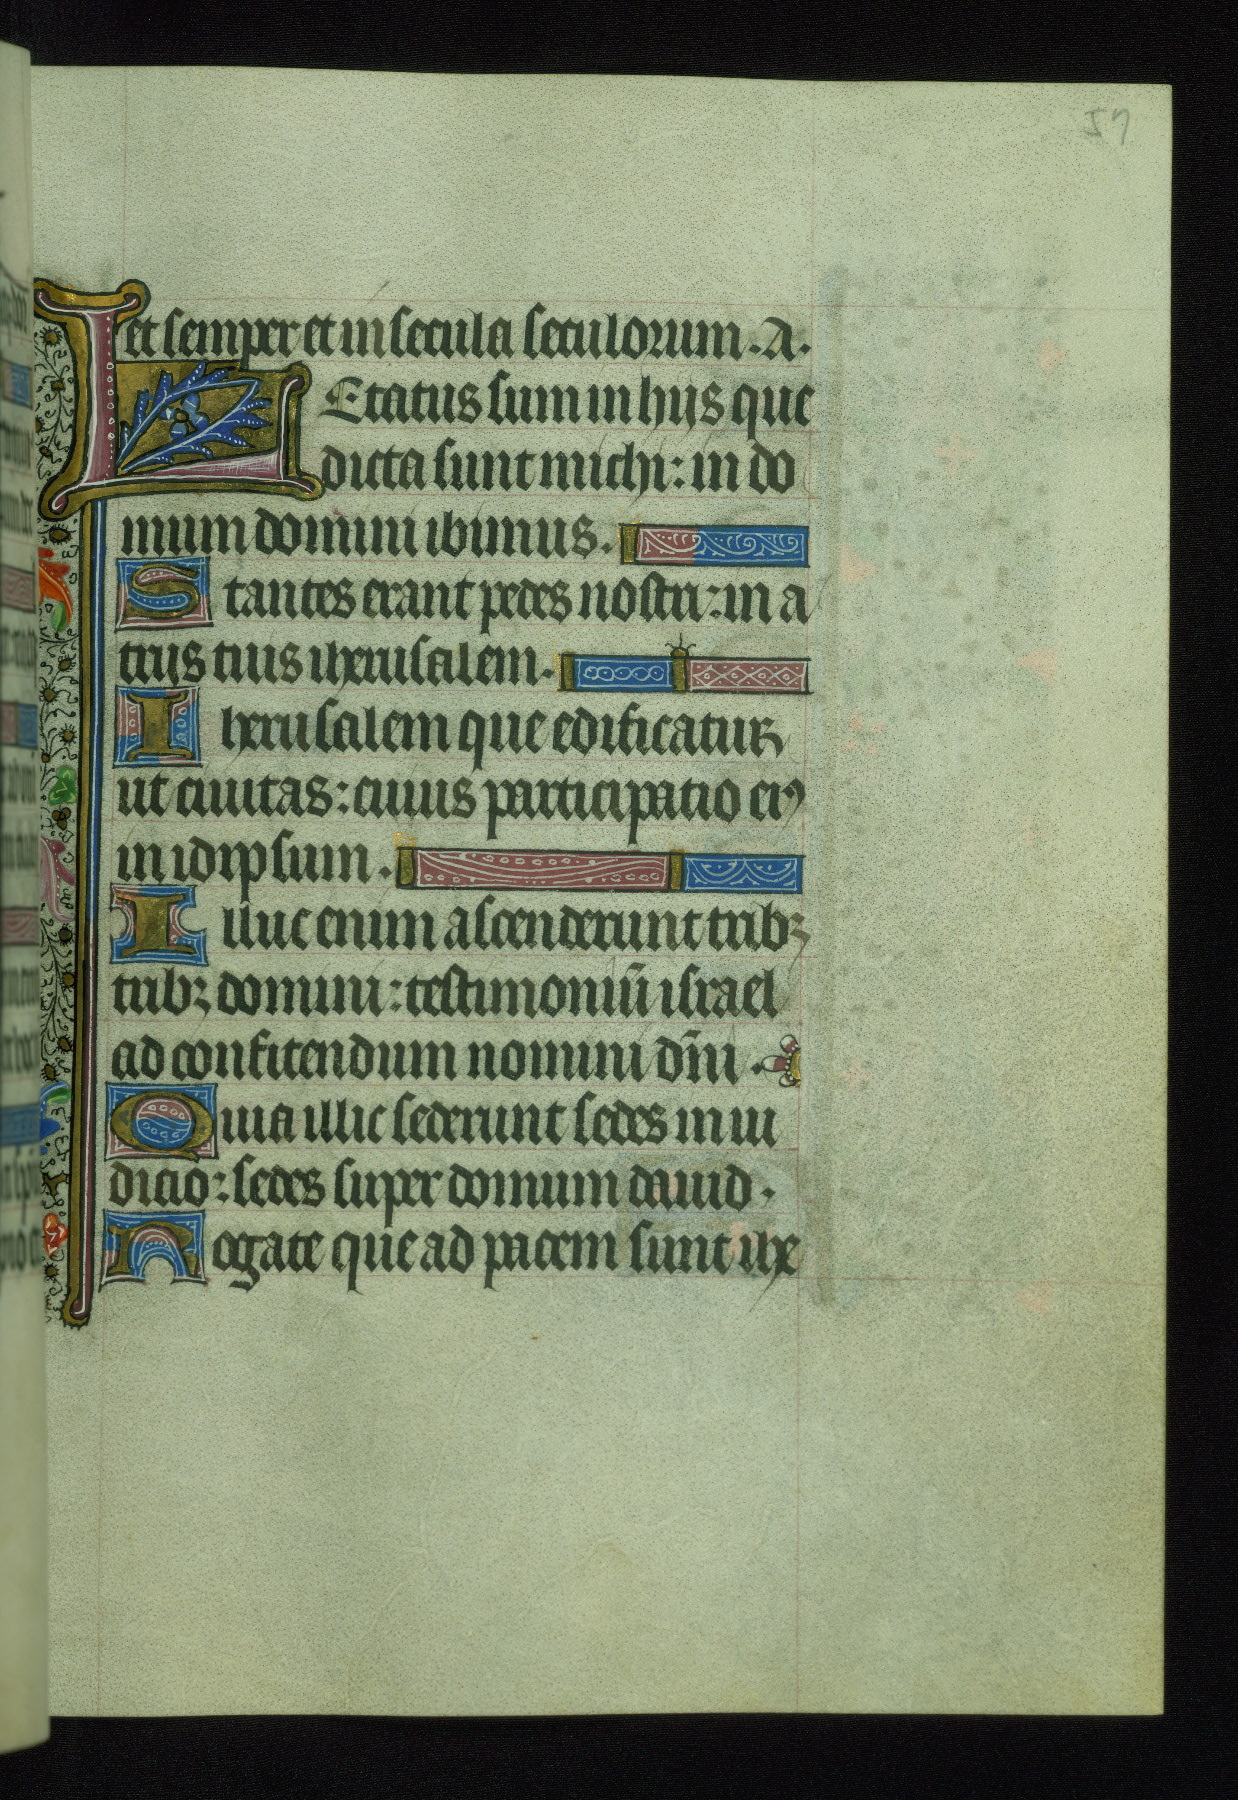 57
et semper et in secula seculorum. A.
LEtatus sum in hijs que
dicta sunt michi: in do
mum domini ibimus.
Stantes erant pedes nostri: in a
trijs tuis iherusalem.
Iherusalem que edificatur
ut ciuitas: cuius participatio eiꝰ
in idipsum.
Illuc enim ascenderunt tribꝫ
tribꝫ domini: testimoniū israel
ad confitendum nomini dn̄i.
Quia illic sederunt sedes in iu
dicio: sedes super domum dauid.
Rogate que ad pacem sunt ihe